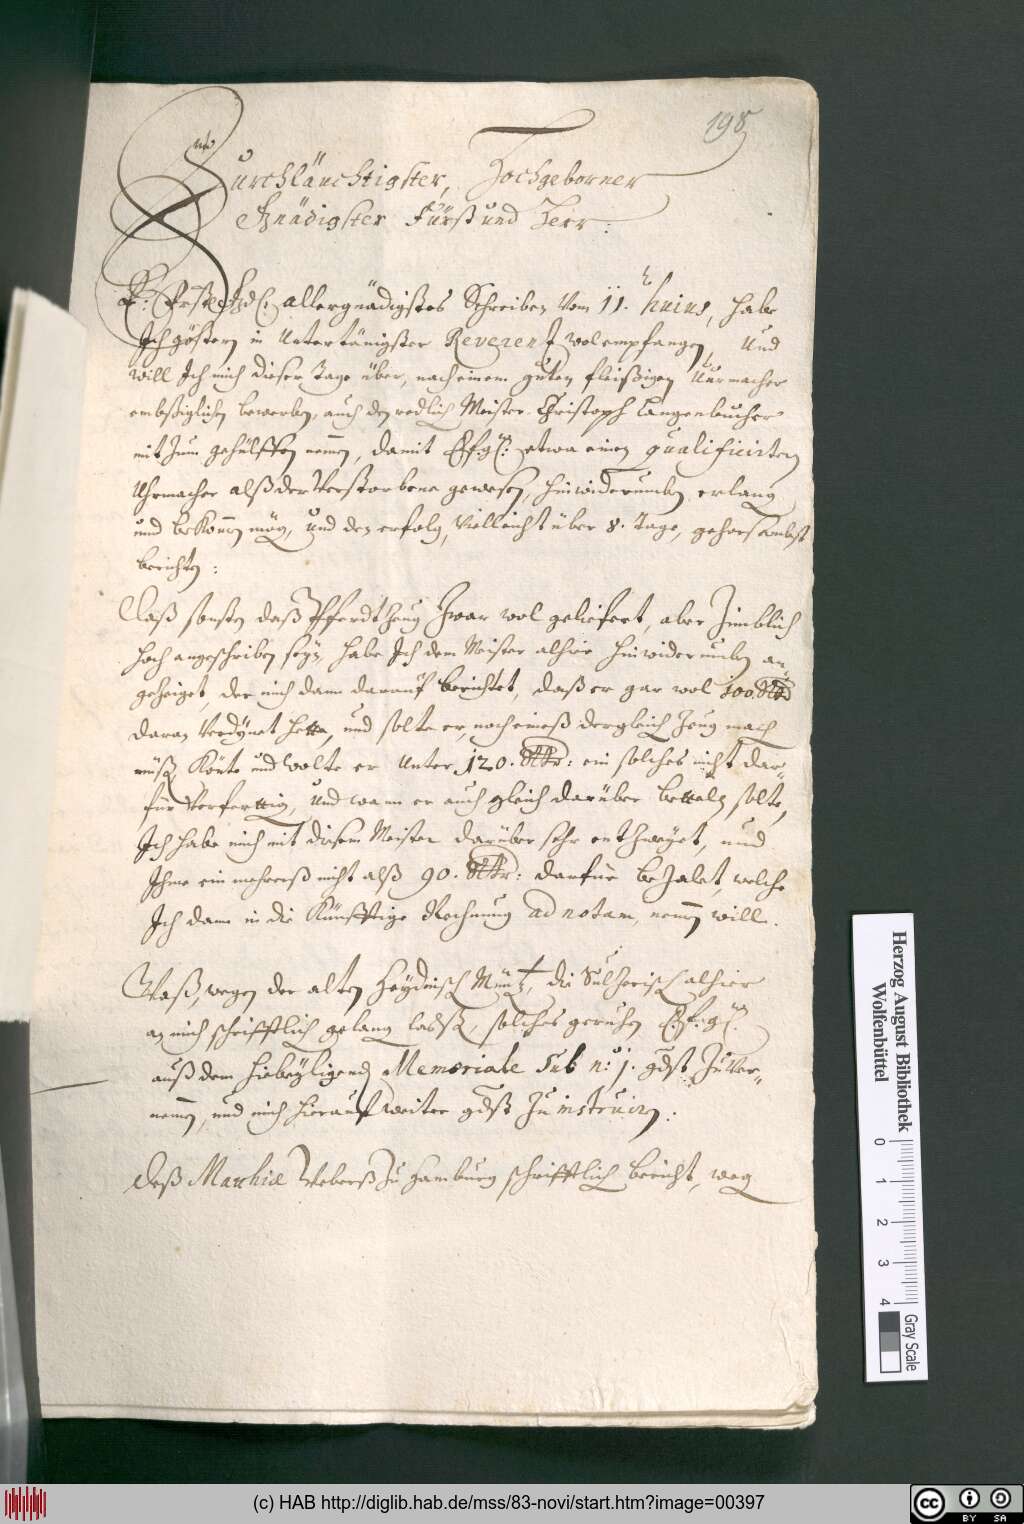 198
Durchläuchtigster, Hochgeborner
Gnädigster Fürst und Herr:
E: Frstl: Gd: allergnädigstes Schreiben vom 11. huius, habe
Ich göstern in Untertänigster Reverentz wol empfangen, Und
will Ich mich dieser Tage über, nach einem guten fleißigen Uurmacher
embsiglichen bewerben, auch den redlich Meister Christoph Langenbucher
mit zum gehülffen nemen, damit E.f.g: etwa einen qualificirten
Uhrmacher alß der Verstorbene gewesen, hinwiderumben erlang
und bekomen mög, und den erfolg, Villeicht über 8. Tage, gehorsambst
berichten:
Daß sonsten daß Pferdt Zeug zwar wol geliefert, aber Zimblich
hoch angeschriben seye, habe Ich dem Meister alhier hinwiderumben an-
gezeiget, der mich dann darauf berichtet, daß er gar wol 100. Rtr
daran Verdynet hette, und solte er, noch eineß dergleich Zeug mach
müß, Könte und Wolte er Unter 120. Rttr: ein solches nicht dar-
für Verfertig, Und wann er auch gleich darüber bettalt solte,
Ich habe mich mit disem Meister darüber sehr enthzweyet, und
Ihme ein mehrerß nicht alß 90. Rttr: darfür bezalet, welche
Ich dann in die Künfftige Rechnung ad notam, nemen will.
Waß, wegen der alten Heydnisch Müntz, die Sulzerisch alhier
an mich schrifftlich gelang lasst, solches geruhen E.f.g:
auß dem hiebeyligend Memoriale Sub n: 1. gdst Zu Ver-
nemen, und mich hierauf weiter gdst Zu instruirn:
Deß Mathiæ Weberß Zu Hamburg schrifftlich bericht, weg
Herzog August Bibliothek
Wolfenbüttel
0 1 2 3 4
Gray Scale
(c) HAB http://diglib.hab.de/mss/83-novi/start.htm?image=00397
cc BY SA